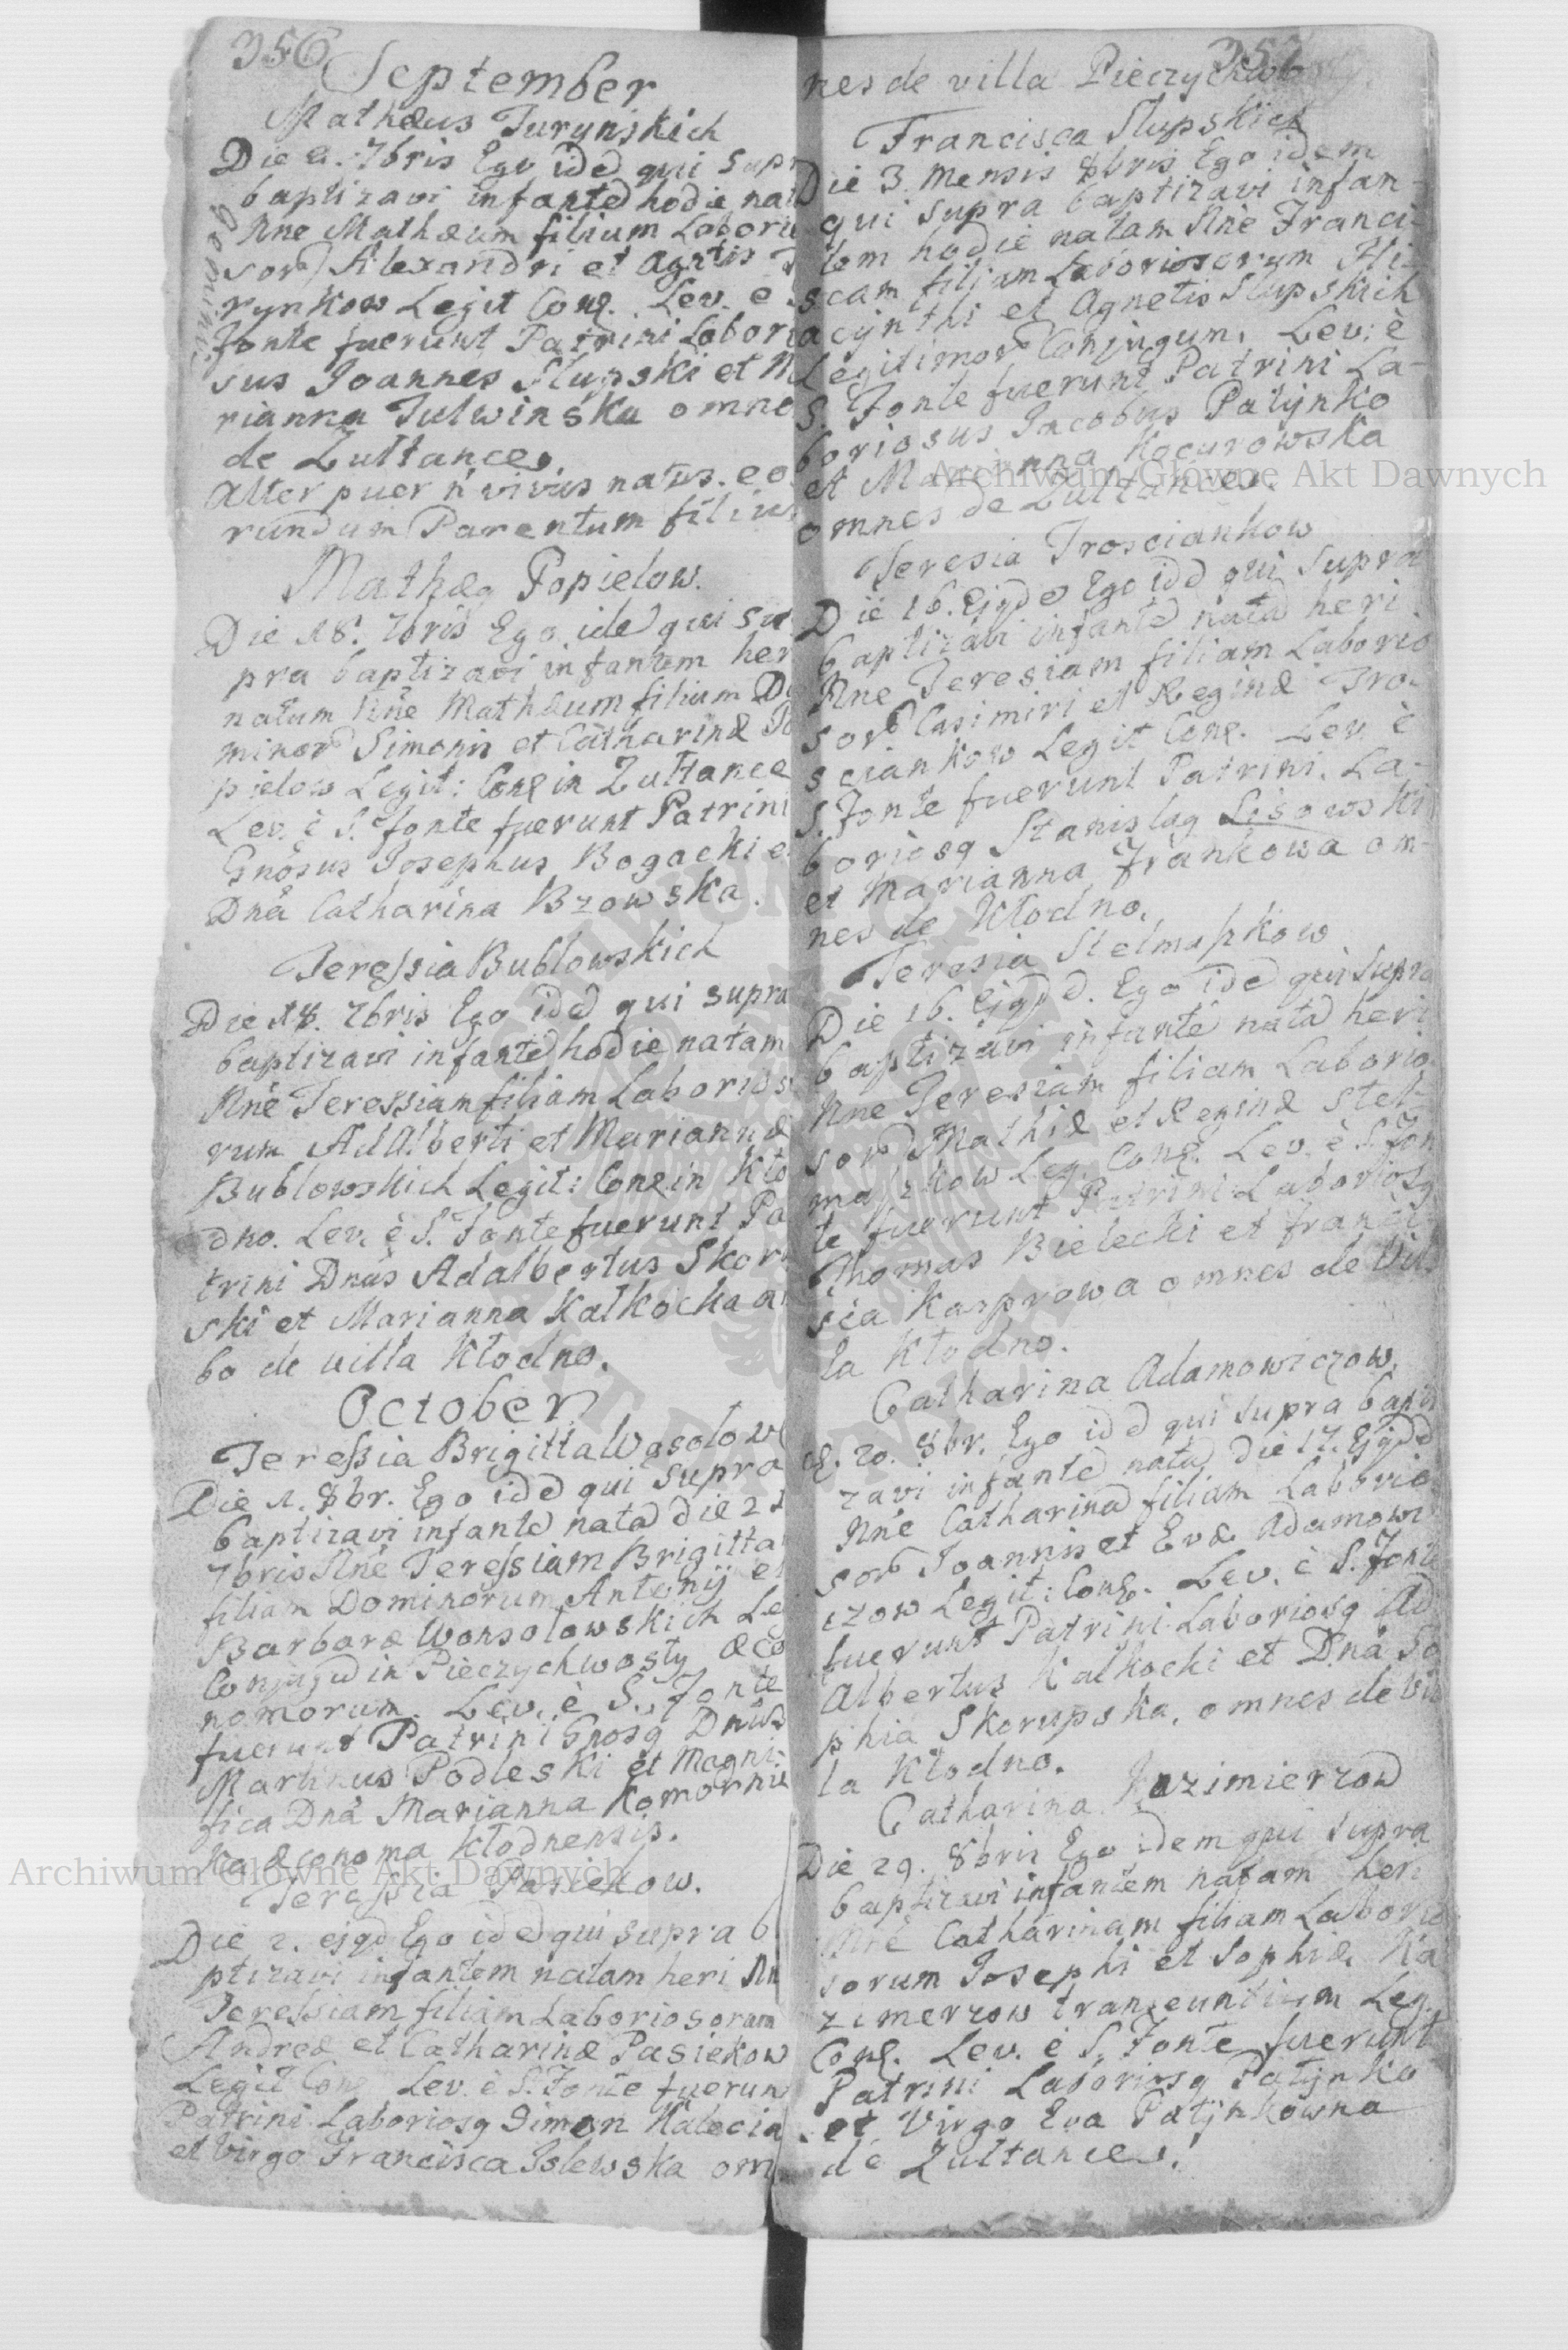 356
September
Mathæus Jurynskich
Die 2. 7bris Ego ide qui supr
baptizavi infante hodie nat
Nne Mathæum filium Laborio
sor Alexandri et Agnetis Ju
rynkow Legit Conj. Lev. e S
fonte fuerunt Patrini Laborio
sus Joannes Slupski et Ma
rianna Julwinska omnes
de Zułtance.
Alter puer n vivus natus. eo
rundum Parentum filius
gemini
Mathæq Popielow.
Die 18. 7bris Ego ide qui su
pra baptizavi infantem her
natum Nne Mathæum filium Do
minor Simonis et Catharinæ Po
pielow Legit: Conj in Zułtance
Lev. è S. fonte fuerunt Patrini
Gnosus Josephus Bogacki e
Dna Catharina Bzowska.
Teressia Bublowskich
Die 18. 7bris Ego ide qui supra
baptizavi infante hodie natam
Nne Teressiam filiam Laborios
rum Adalberti et Mariannæ
Bublowskich Legit: Conj in Kło
dno. Lev. è S. Fonte fuerunt Pa
trini Dnus Adalbertus Skor
ski et Marianna Kalkocka am
bo de villa Kłodno.
October
Teressia Brigitta Wąsolow
Die 1. 8br. Ego ide qui supra
baptizavi infante nata die 21
7bris Nne Teressiam Brigittam
filiam Dominorum Antonij et
Barbaræ Wonsolowskich Leg
Conjugu in Pieczychwosty œco
nomorum. Lev. è S. Fonte
fuerunt Patrini Gnosq Dnus
Martinus Podleski et Magni-
fica Dna Marianna Komornic
ka œconoma Kłodnensis.
Teressia Pasiekow.
Die 2. ejqd Ego ide qui supra b
ptizavi infantem natam heri Nn
Teressiam filiam Laboriosorum
Andreæ et Catharinæ Pasiekow
Legit Conj Lev. è S. Fonte fuerun
Patrini Laboriosq Simon Kalecia
et Virgo Francisca Islewska om
357
nes de villa Pieczychwosty.
Francisca Slupskich
Die 3. Mensis 8bris Ego idem
qui supra baptizavi infan-
tem hodie natam Nne Franci-
scam filiam Laboriosorum Hi-
acijnthi et Agnetis Slupskich
Legitimor Conjugum. Lev. è
S. Fonte fuerunt Patrini La-
boriosus Jacobus Patijnko
et Marianna Kocurowska
omnes de Zułtance.
Teresia Trosciankow
Die 16. Ejqde Ego ide qui supra
baptizavi infante nata heri
Nne Teresiam filiam Laborio
sor Casimiri et Reginæ Tro-
sciankow Legit Conj. Lev. è
S. Fonte fuerunt Patrini. La-
boriosq Stanislaq Lisowski
et Marianna Frankowa om-
nes de Kłodno.
Teresia Stelmaszkow
Die 16. Ejqdd. Ego ide qui supra
baptizavi infante nata heri
Nne Teresiam filiam Laborio
sor Mathiæ et Reginæ Stel-
maszkow Leg. Conj. Lev. è S. Fon
te fuerunt Patrini Laboriosq
Thomas Bielecki et Franci-
sca Kasprowa omnes de Vil-
la Kłodno.
Catharina Adamowiczow.
D. 20. 8br. Ego ide qui supra bapti
zavi infante nata die 17. Ejqdd
Nne Catharina filiam Laborio
sor Joannis et Evæ Adamowi
czow Legit: Conj. Lev. è S. Fonte
fuerunt Patrini Laboriosq Ad
albertus Kalkocki et Dna So
phia Skorupska, omnes de Vil
la Kłodno.
Catharina Kazimierzow
Die 29. 8bris Ego idem qui supra
baptizavi infantem natam heri
Nne Catharinam filiam Laborio
sorum Josephi et Sophiæ Ka
zimerzow transeuntium Leg.
Conj. Lev. è S. Fonte fuerunt
Patrini Laboriosq Patijnko
et Virgo Eva Patijnkowna
de Zułtance.
Archiwum Główne Akt Dawnych
Archiwum Główne Akt Dawnych